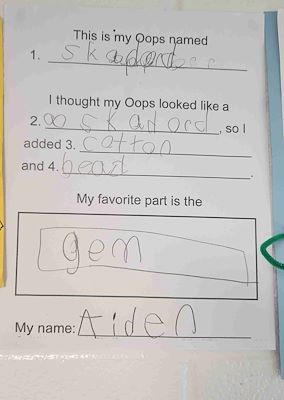 This is my Oops named
1.
I thought my Oops looked like a
2. oo skatord, so I
added 3. cotton
and 4. beazt.
My favorite part is the
gem
My name: Aiden